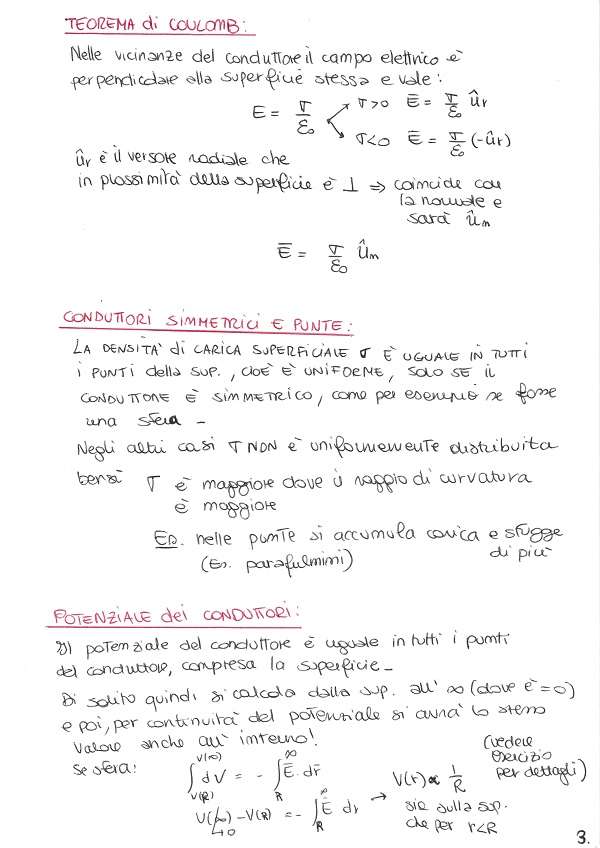 TEOREMA di COULOMB:
Nelle vicinanze del conduttore il campo elettrico è
perpendicolare alla superficie stessa e vale:
E = σ/ε₀ → σ>0 Ē = σ/ε₀ ûr
→ σ<0 Ē = σ/ε₀ (-ûr)
ûr è il versore radiale che
in prossimità della superficie è ⊥ ⇒ coincide con
la normale e
sarà ûm
Ē = σ/ε₀ ûm
CONDUTTORI SIMMETRICI E PUNTE:
LA DENSITA' di CARICA SUPERFICIALE σ È UGUALE IN TUTTI
i PUNTI della SUP., CIOÈ È UNIFORME, SOLO SE il
CONDUTTORE È SIMMETRICO, come per esempio se fosse
una sfera -
Negli altri casi σ NON è uniformemente distribuita
bensì σ è maggiore dove il raggio di curvatura
è maggiore
Es. nelle punte si accumula carica e sfugge
di più
(Es. parafulmini)
POTENZIALE dei CONDUTTORI:
Il potenziale del conduttore è uguale in tutti i punti
del conduttore, compresa la superficie -
Di solito quindi si calcola dalla sup. all' ∞ (dove è = 0)
e poi, per continuità del potenziale si avrà lo stesso
valore anche all' interno!
se sfera: ∫_{V(R)}^{V(∞)} dV = - ∫_R^∞ Ē · dr̄
V(∞) - V(R) = - ∫_R^∞ E dr → V(r) ∝ 1/R
↳0
(vedere
esercizio
per dettagli)
sia sulla sup.
che per r<R
3.